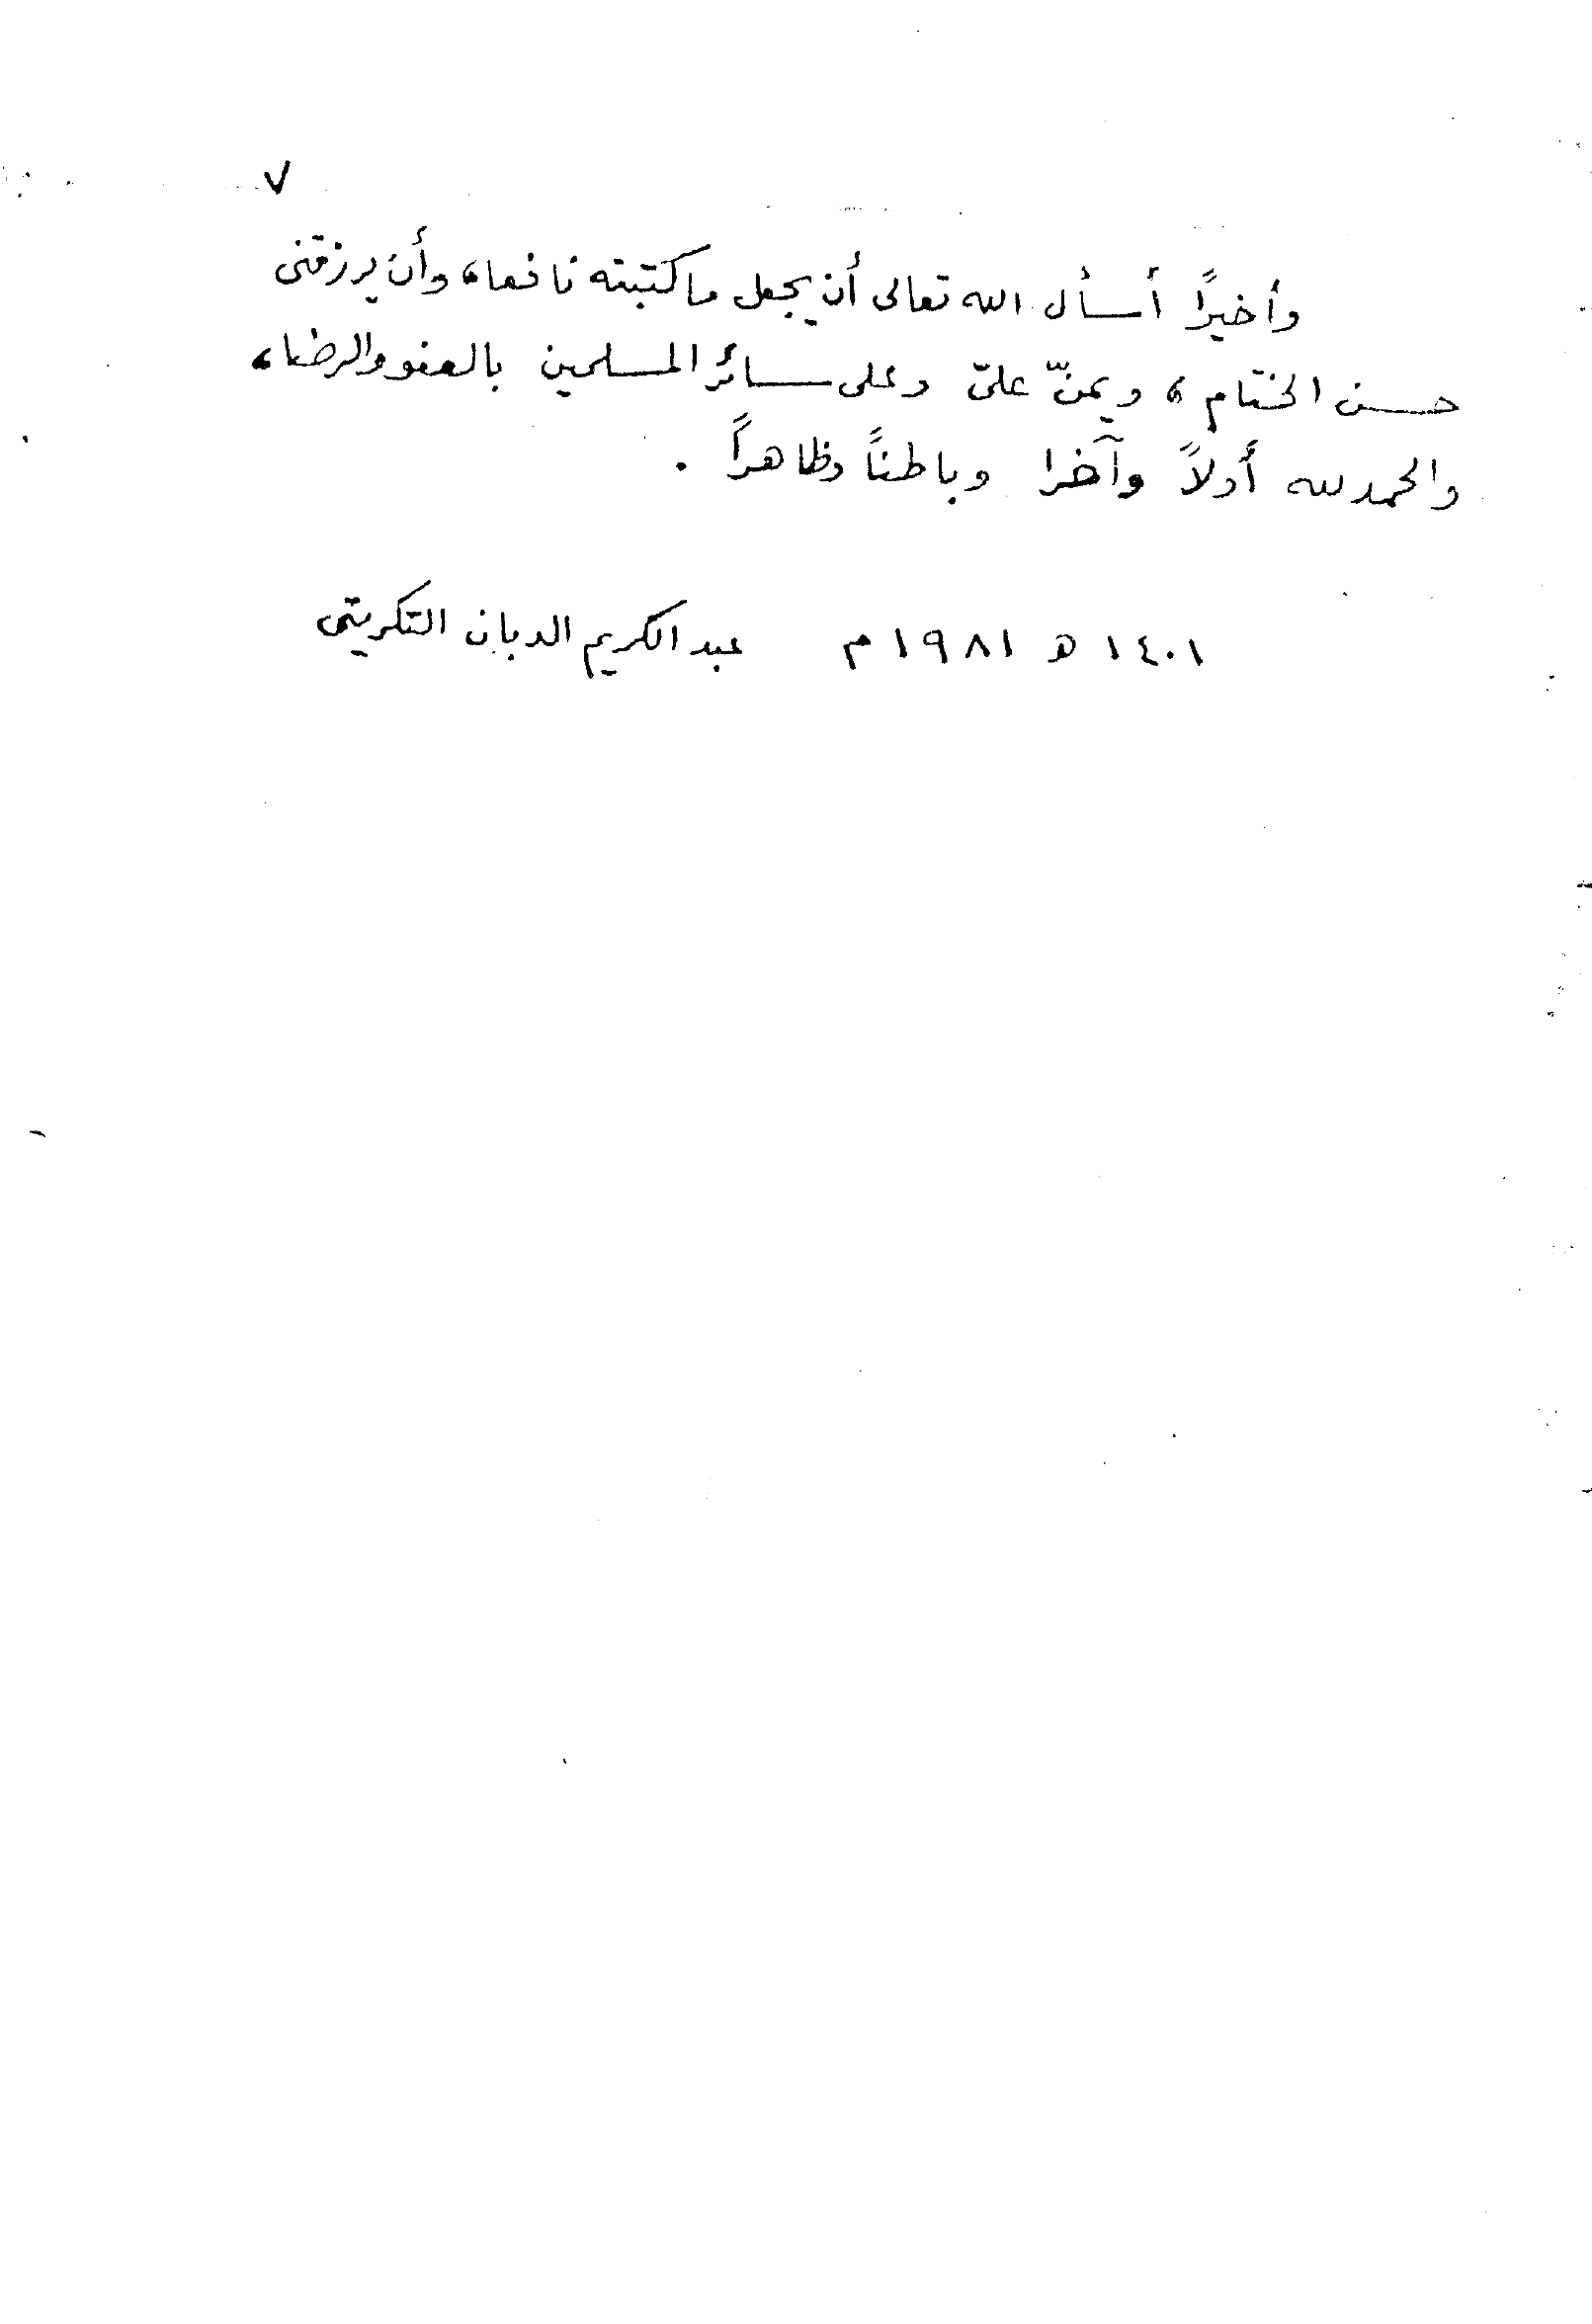 ٧
وأخيرًا أسأل الله تعالى أن يجعل ما كتبته نافعا، وأن يرزقنى
حسن الختام، ويمنّ علىّ وعلى سائر المسلمين بالعفو والرضا،
والحمد لله أولاً وآخرا وباطناً وظاهراً .
١٤٠١ هـ ١٩٨١ م عبد الكريم الدبان التكريتى